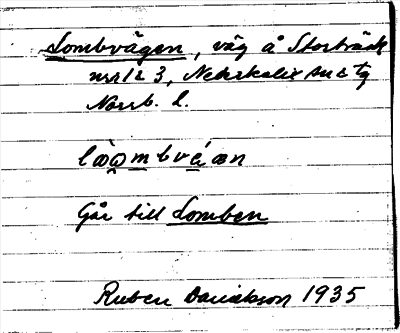 Lombvägen, väg å Storträsk
nr 1 & 3, Nederkalix sn & tg
Norrb. l.
Går till Lomben
Ruben Danielsson 1935